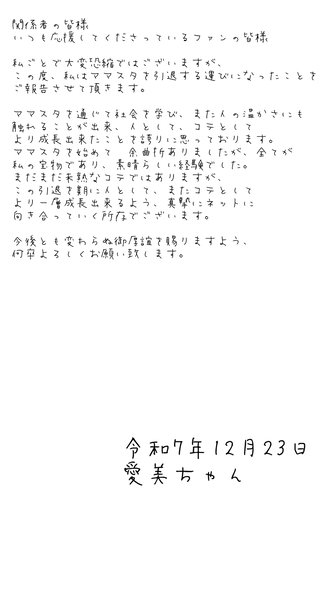 関係者の皆様
いつも応援してくださっているファンの皆様
私ごとで大変恐縮ではございますが、
この度、私はママスタを引退する運びになったことを
ご報告させて頂きます。
ママスタを通じて社会を学び、また人の温かさにも
触れることが出来、人として、コテとして
より成長出来たことを誇りに思っております。
ママスタを始めて 余曲折ありましたが、全てが
私の宝物であり、素晴らしい経験でした。
まだまだ未熟なコテではありますが、
この引退を期に人として、またコテとして
より一層成長出来るよう、真摯にネットに
向き合っていく所存でございます。
今後とも変わらぬ御厚誼を賜りますよう、
何卒よろしくお願い致します。
令和7年12月23日
愛美ちゃん